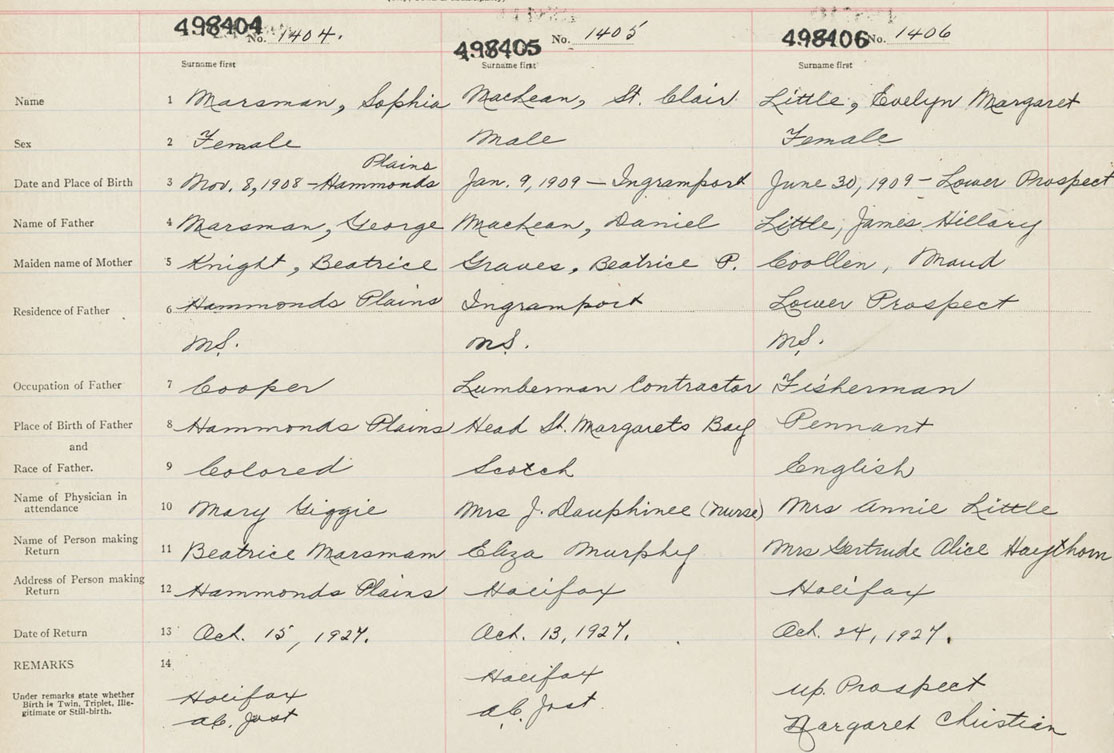 498404 No. 1404. 498405 No. 1405 498406 No. 1406
Surname first Surname first Surname first
Name 1 Marsman, Sophia MacLean, St. Clair Little, Evelyn Margaret
Sex 2 Female Male Female
Plains
Date and Place of Birth 3 Nov. 8, 1908 - Hammonds Jan. 9, 1909 - Ingramport June 30, 1909 - Lower Prospect
Name of Father 4 Marsman, George MacLean, Daniel Little, James Hillary
Maiden name of Mother 5 Knight, Beatrice Graves, Beatrice P. Coollen, Maud
Residence of Father 6 Hammonds Plains Ingramport Lower Prospect
N.S. N.S. N.S.
Occupation of Father 7 Cooper Lumberman Contractor Fisherman
Place of Birth of Father 8 Hammonds Plains Head St. Margarets Bay Pennant
and
Race of Father. 9 Colored Scotch English
Name of Physician in
attendance 10 Mary Giggie Mrs J. Dauphinee (Nurse) Mrs Annie Little
Name of Person making
Return 11 Beatrice Marsman Eliza Murphy Mrs Gertrude Alice Haythorn
Address of Person making
Return 12 Hammonds Plains Halifax Halifax
Date of Return 13 Oct. 15, 1927. Oct. 13, 1927. Oct. 24, 1927.
REMARKS 14
Under remarks state whether
Birth is Twin, Triplet, Ille-
gitimate or Still-birth.
Halifax Halifax Up. Prospect
A.C. Jost A.C. Jost Margaret Christian